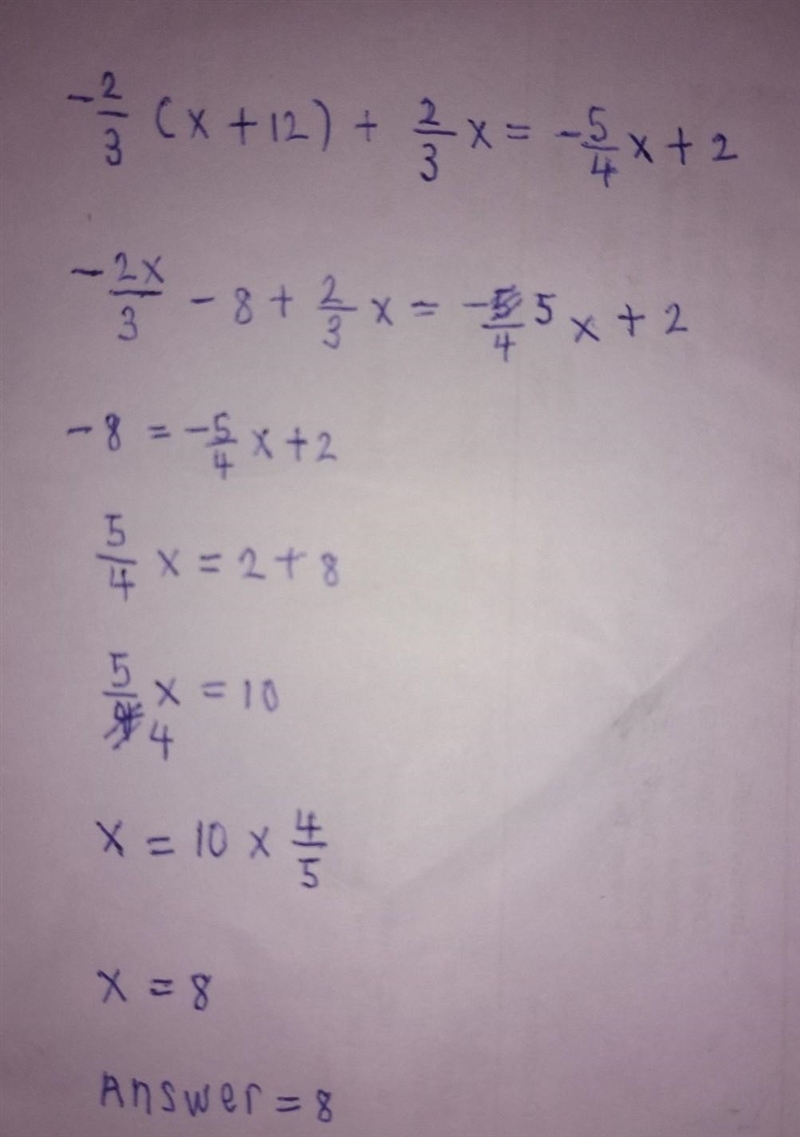 -2/3 (x + 12) + 2/3 x = -5/4 x + 2
-2x/3 - 8 + 2/3 x = -5/4 x + 2
-8 = -5/4 x + 2
5/4 x = 2 + 8
5/4 x = 10
x = 10 × 4/5
x = 8
Answer = 8